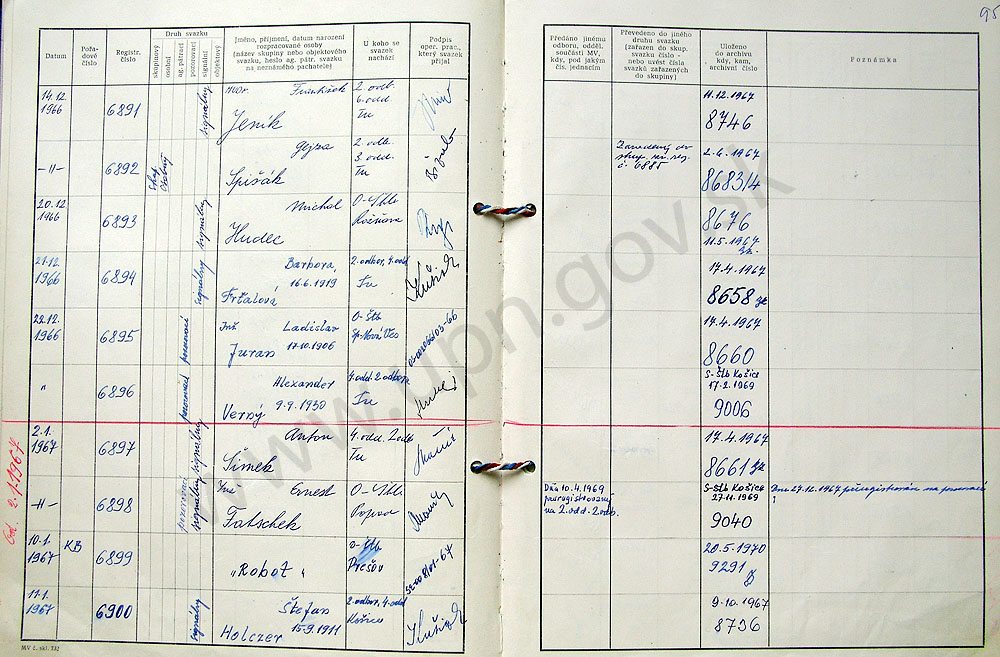 95
Datum
Pořadové číslo
Registr. číslo
Druh svazku
skupinový
osobní
ag. pátrací
pozorovací
signální
objektový
Jméno, příjmení, datum narození
rozpracované osoby
(název skupiny nebo objektového
svazku, heslo ag. pátr. svazku
na neznámého pachatele)
U koho se
svazek
nachází
Podpis
oper. prac.,
který svazek
přijal
Předáno jinému
odboru, odděl.
součásti MV,
kdy, pod jakým
čís. jednacím
Převedeno do jiného
druhu svazku
(zařazen do skup.
svazku číslo -
nebo uvést čísla
svazků zařazených
do skupiny)
Uloženo
do archivu
kdy, kam,
archivní číslo
Poznámka
14.12. 1966
6891
signálny
František
Jeník
2. odb.
6. odd
11.12.1967
8746
-II-
6892
Gejza
Spišák
2. odb.
3. odd.
Zavedený do
č. 6885
2.6.1967
868314
20.12 1966
6893
signálny
Michal
Hudec
O-Štb
Rožňava
8676
11.5.1967
21.12. 1966
6894
signálny
Barbora,
16.6.1919
Frťalová
2. odbor, 4. odd
17.4.1967
8658
22.12. 1966
6895
pozorovací
Inž
Ladislav
Juran 17.10.1906
O-Štb
Sp. Nová Ves
17.4.1967
8660
"
6896
pozorovací
Alexander
Verný 9.9.1930
4. odd 2. odboru
S-Štb Košice
17.2.1969
9006
2.1. 1967
6897
signálny
Anton
Šimek
4. odd. 2. odb
17.4.1967
8661
Od. 2.1.1967
-II-
6898
pozorovací
signálny
Ing
Ernest
Fatschek
O-Štb.
Poprad
Dňa 10.4.1969
preregistrovaný
na 2. odd. 2. odb.
S-Štb Košice
27.11.1969
9040
Dne 27.12.1967 přeregistrován na pozorovací
10.1. 1967
KB
6899
"Robot"
O-Štb
Prešov
20.5.1970
9291
11.1. 1967
6900
signálny
Štefan
Holczer 15.9.1911
2. odbor, 4. odd
Košice
9.10.1967
8736
MV č. skl. 132
www.upn.gov.sk